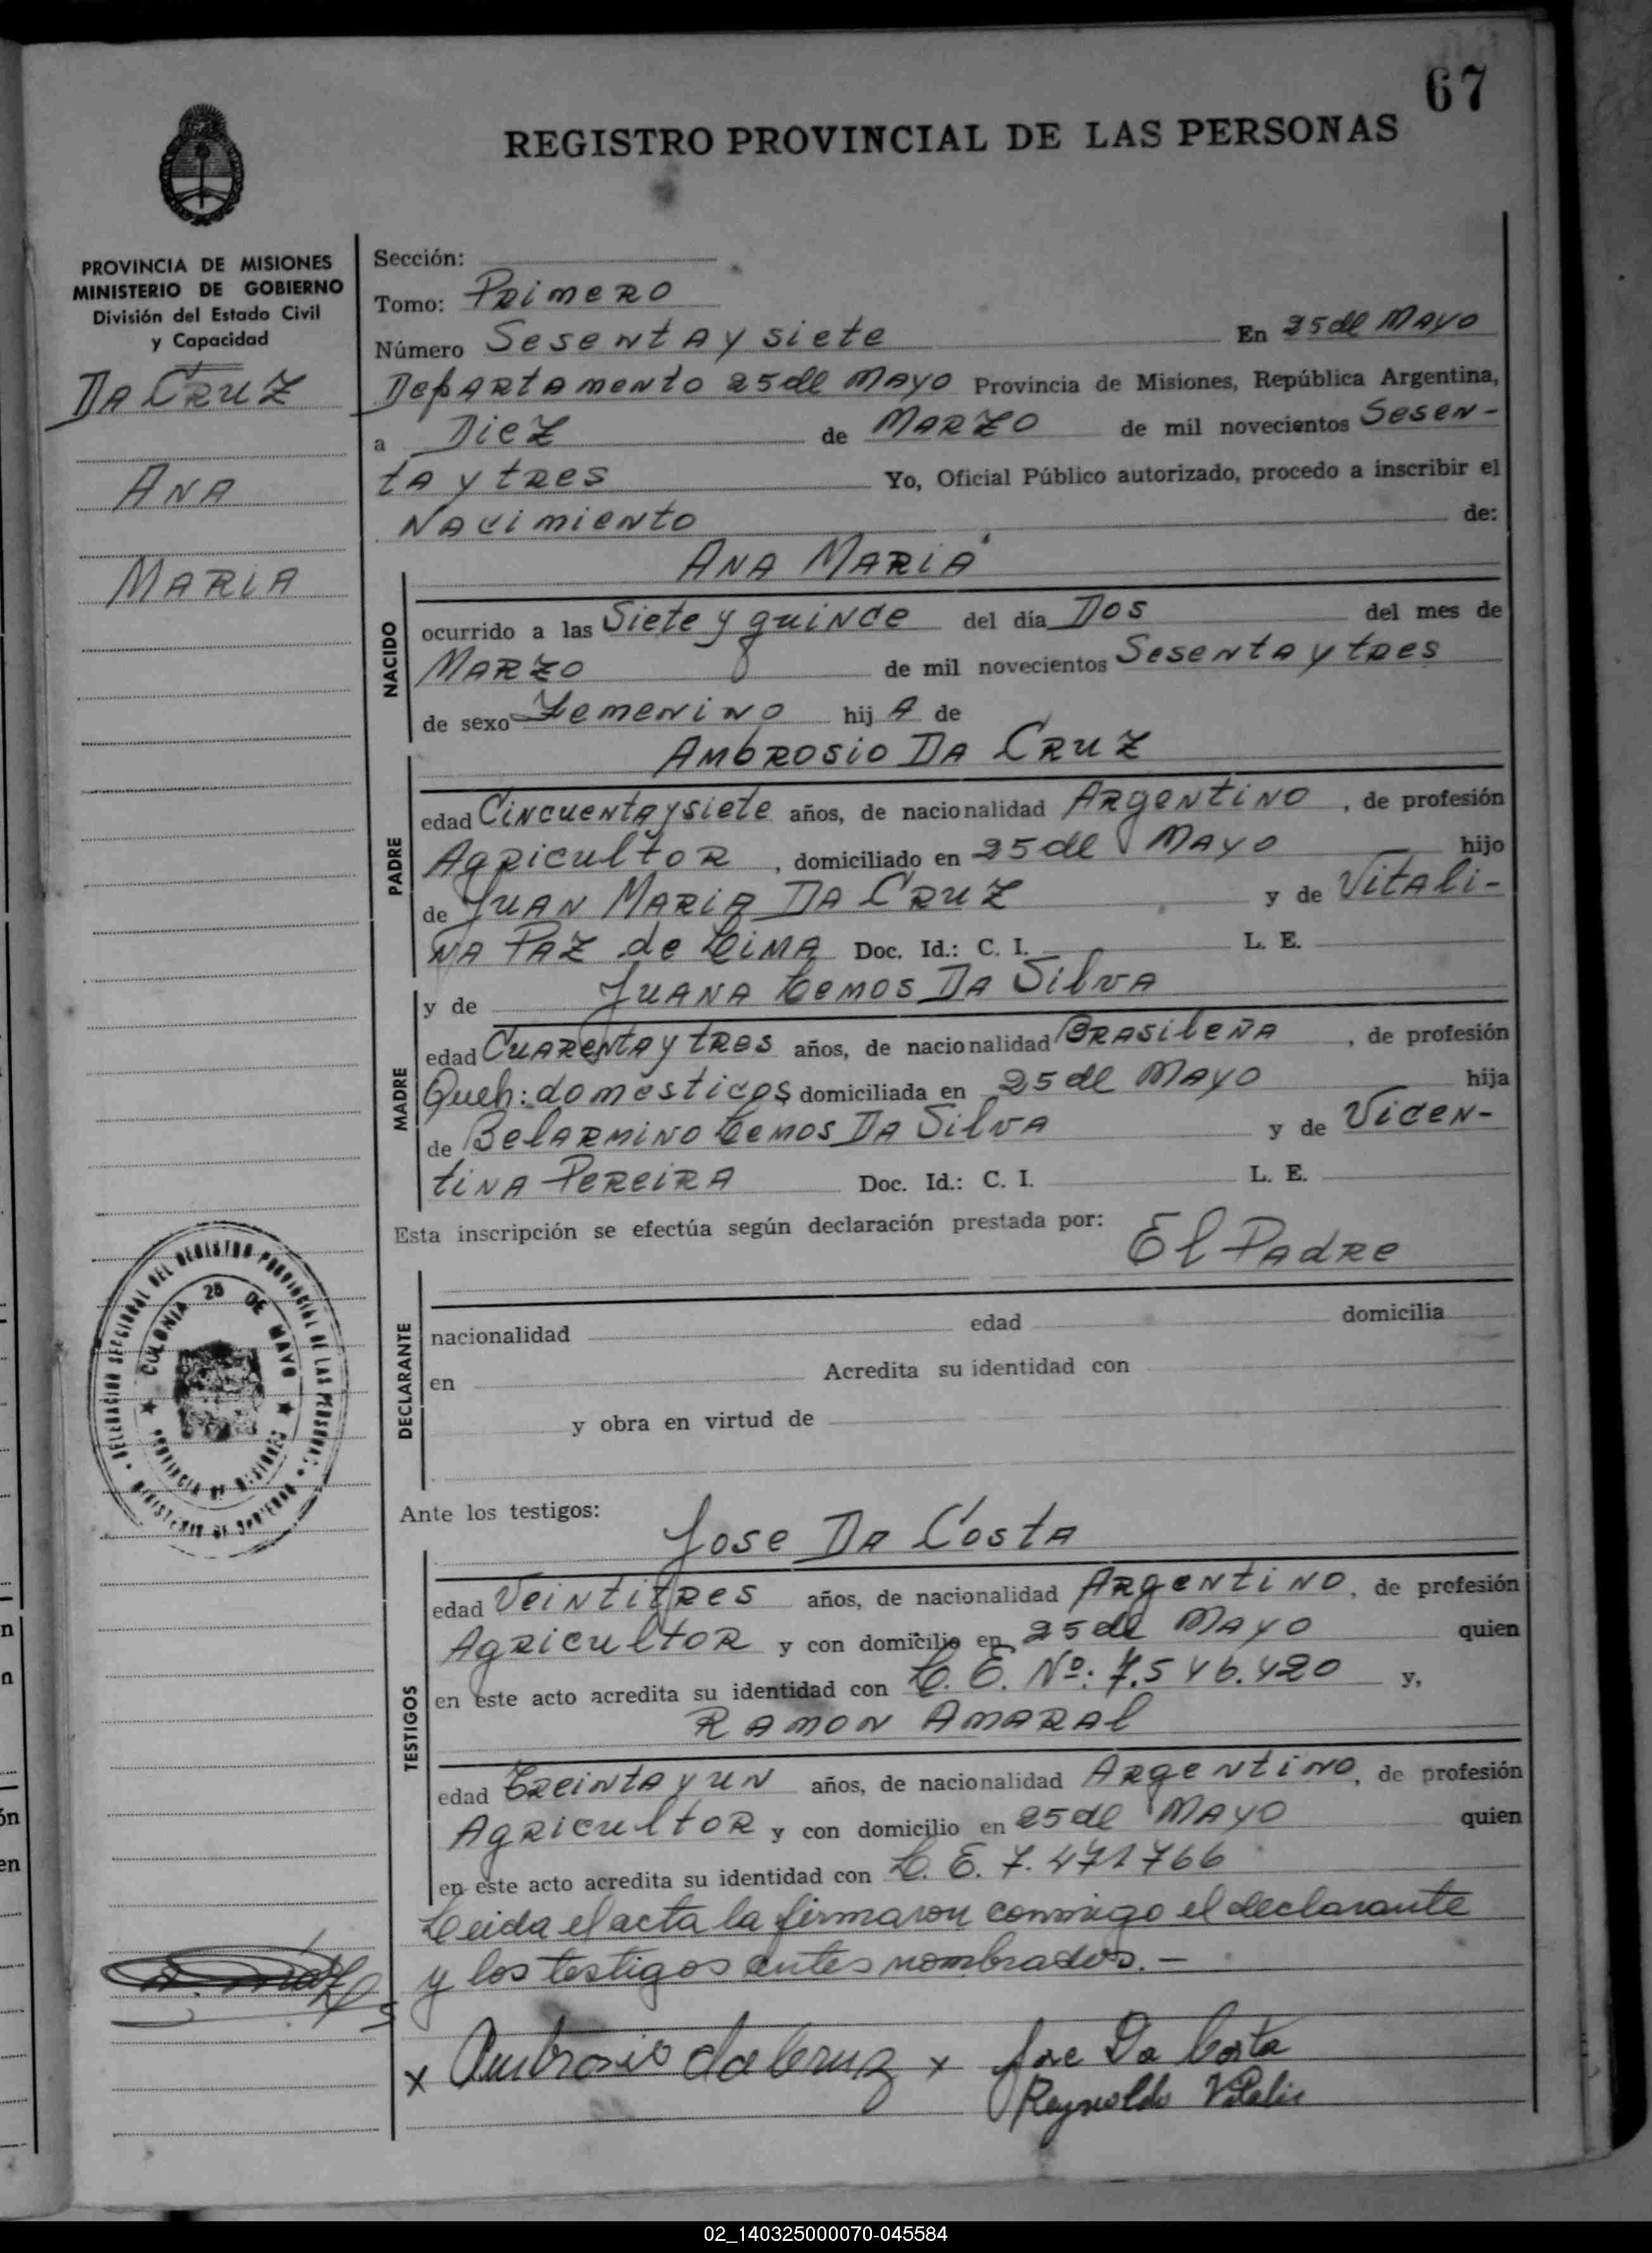 67
REGISTRO PROVINCIAL DE LAS PERSONAS
PROVINCIA DE MISIONES
MINISTERIO DE GOBIERNO
División del Estado Civil
y Capacidad
DA CRUZ
ANA
MARIA
Sección:
Tomo: Primero
Número Sesenta y siete En 25 de Mayo
Departamento 25 de Mayo Provincia de Misiones, República Argentina,
a Diez de Marzo de mil novecientos Sesen-
ta y tres Yo, Oficial Público autorizado, procedo a inscribir el
Nacimiento de:
ANA MARIA
NACIDO
ocurrido a las Siete y quince del día Dos del mes de
Marzo de mil novecientos Sesenta y tres
de sexo Femenino hij A de
AMBROSIO DA CRUZ
PADRE
edad Cincuenta y siete años, de nacionalidad Argentino, de profesión
Agricultor, domiciliado en 25 de Mayo hijo
de Juan Maria Da Cruz y de Vitali-
na Paz de Lima Doc. Id.: C. I. L. E.
y de Juana Lemos Da Silva
MADRE
edad Cuarenta y tres años, de nacionalidad Brasileña, de profesión
Queh: domésticos domiciliada en 25 de Mayo hija
de Belarmino Lemos Da Silva y de Vicen-
tina Pereira Doc. Id.: C. I. L. E.
Esta inscripción se efectúa según declaración prestada por: El Padre
DECLARANTE
nacionalidad edad domicilia
en Acredita su identidad con
y obra en virtud de
DELEGACION SECCIONAL DEL REGISTRO PROVINCIAL DE LAS PERSONAS
COLONIA 25 DE MAYO
PROVINCIA DE MISIONES
MINISTERIO DE GOBIERNO
Ante los testigos:
Jose Da Costa
TESTIGOS
edad Veintitres años, de nacionalidad Argentino, de profesión
Agricultor y con domicilio en 25 de Mayo quien
en este acto acredita su identidad con L. E. Nº: 7.546.420 y,
Ramon Amaral
edad Treinta y un años, de nacionalidad Argentino, de profesión
Agricultor y con domicilio en 25 de Mayo quien
en este acto acredita su identidad con L. E. 7.471766
Leida el acta la firmaron conmigo el declarante
y los testigos antes nombrados.—
x Ambrosio da Cruz x Jose Da Costa
Reynoldo
02_140325000070-045584